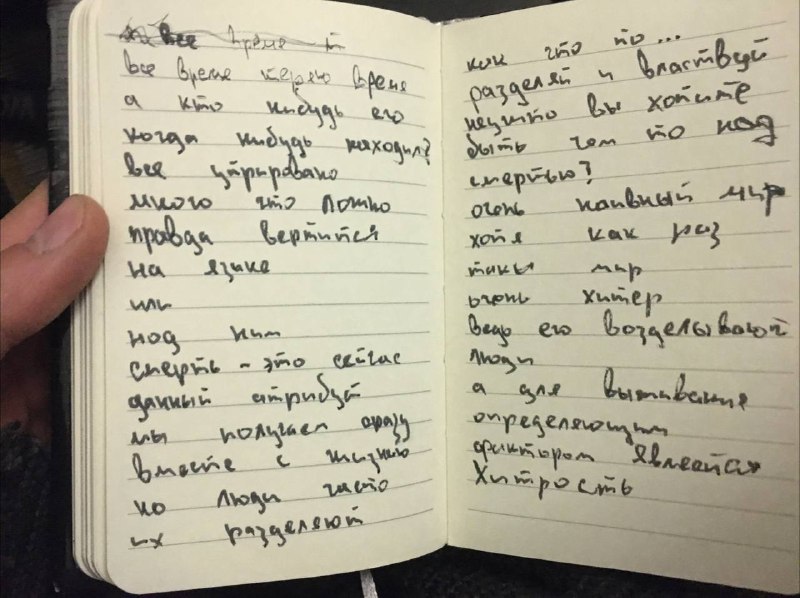 все время т
все время теряю время
а кто нибудь его
когда нибудь находил?
все утрировано
много что ложно
правда вертится
на языке
или
под ним
смерть - это сейчас
данный атрибут
мы получаем сразу
вместе с жизнью
но люди часто
их разделяют
как что то...
разделяй и властвуй
неужто вы хотите
быть чем то над
смертью?
очень наивный мир
хотя как раз
таки мир
очень хитер
ведь его возделывают
люди
а для выживания
определяющим
фактором является
Хитрость